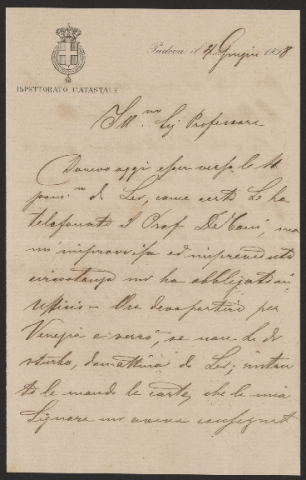 ISPETTORATO CATASTALE
Padova il 4 Giugno 1908
Ill.mo Sig Professore
Dovevo oggi esser verso le 11
da Lei, come certo Le ha
telefonato il Prof De Toni, ma
un' improvvisa ed impreveduta
circostanza mi ha obbligato in
ufficio — Ora devo partire per
Venezia e verrò, se non Le di
sturbo, domattina da Lei; intan
to Le mando le carte, che la mia
Signora mi aveva consegnat